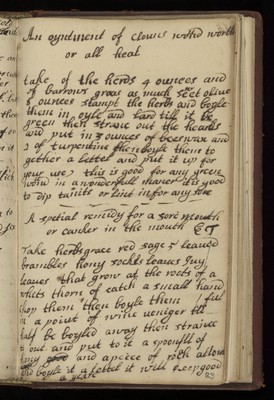 An oyntment of clouns wothd worth
or all heal
take of the herds 4 ounces and
of barrows greas as much sect olive
ounces stampt the herbs and boyle
them in oyle and lard till it be
green then straue out the hearbs
and put in 3 ounces of beeswax and
2 of turpentine then boyle them to
gether a lettel and put it up for
your use this is good for any green
wond in a wonderfull maner its good
to dip taints or lint in for any sore
A spetial remidy for a sore mouth
or canker in the mouth
Take herbsgrace red sage leaues
brambles hony sockls leaues
leaues that grow at the roots of a
whits thorn of eatch a small hand
chop them then boyle them
in a point of wine ueniger till
half be boyled away then straine
out and put to it a spoonfull of
and a peece of roch allom
boyle it a lettel it will keep good
a year
23